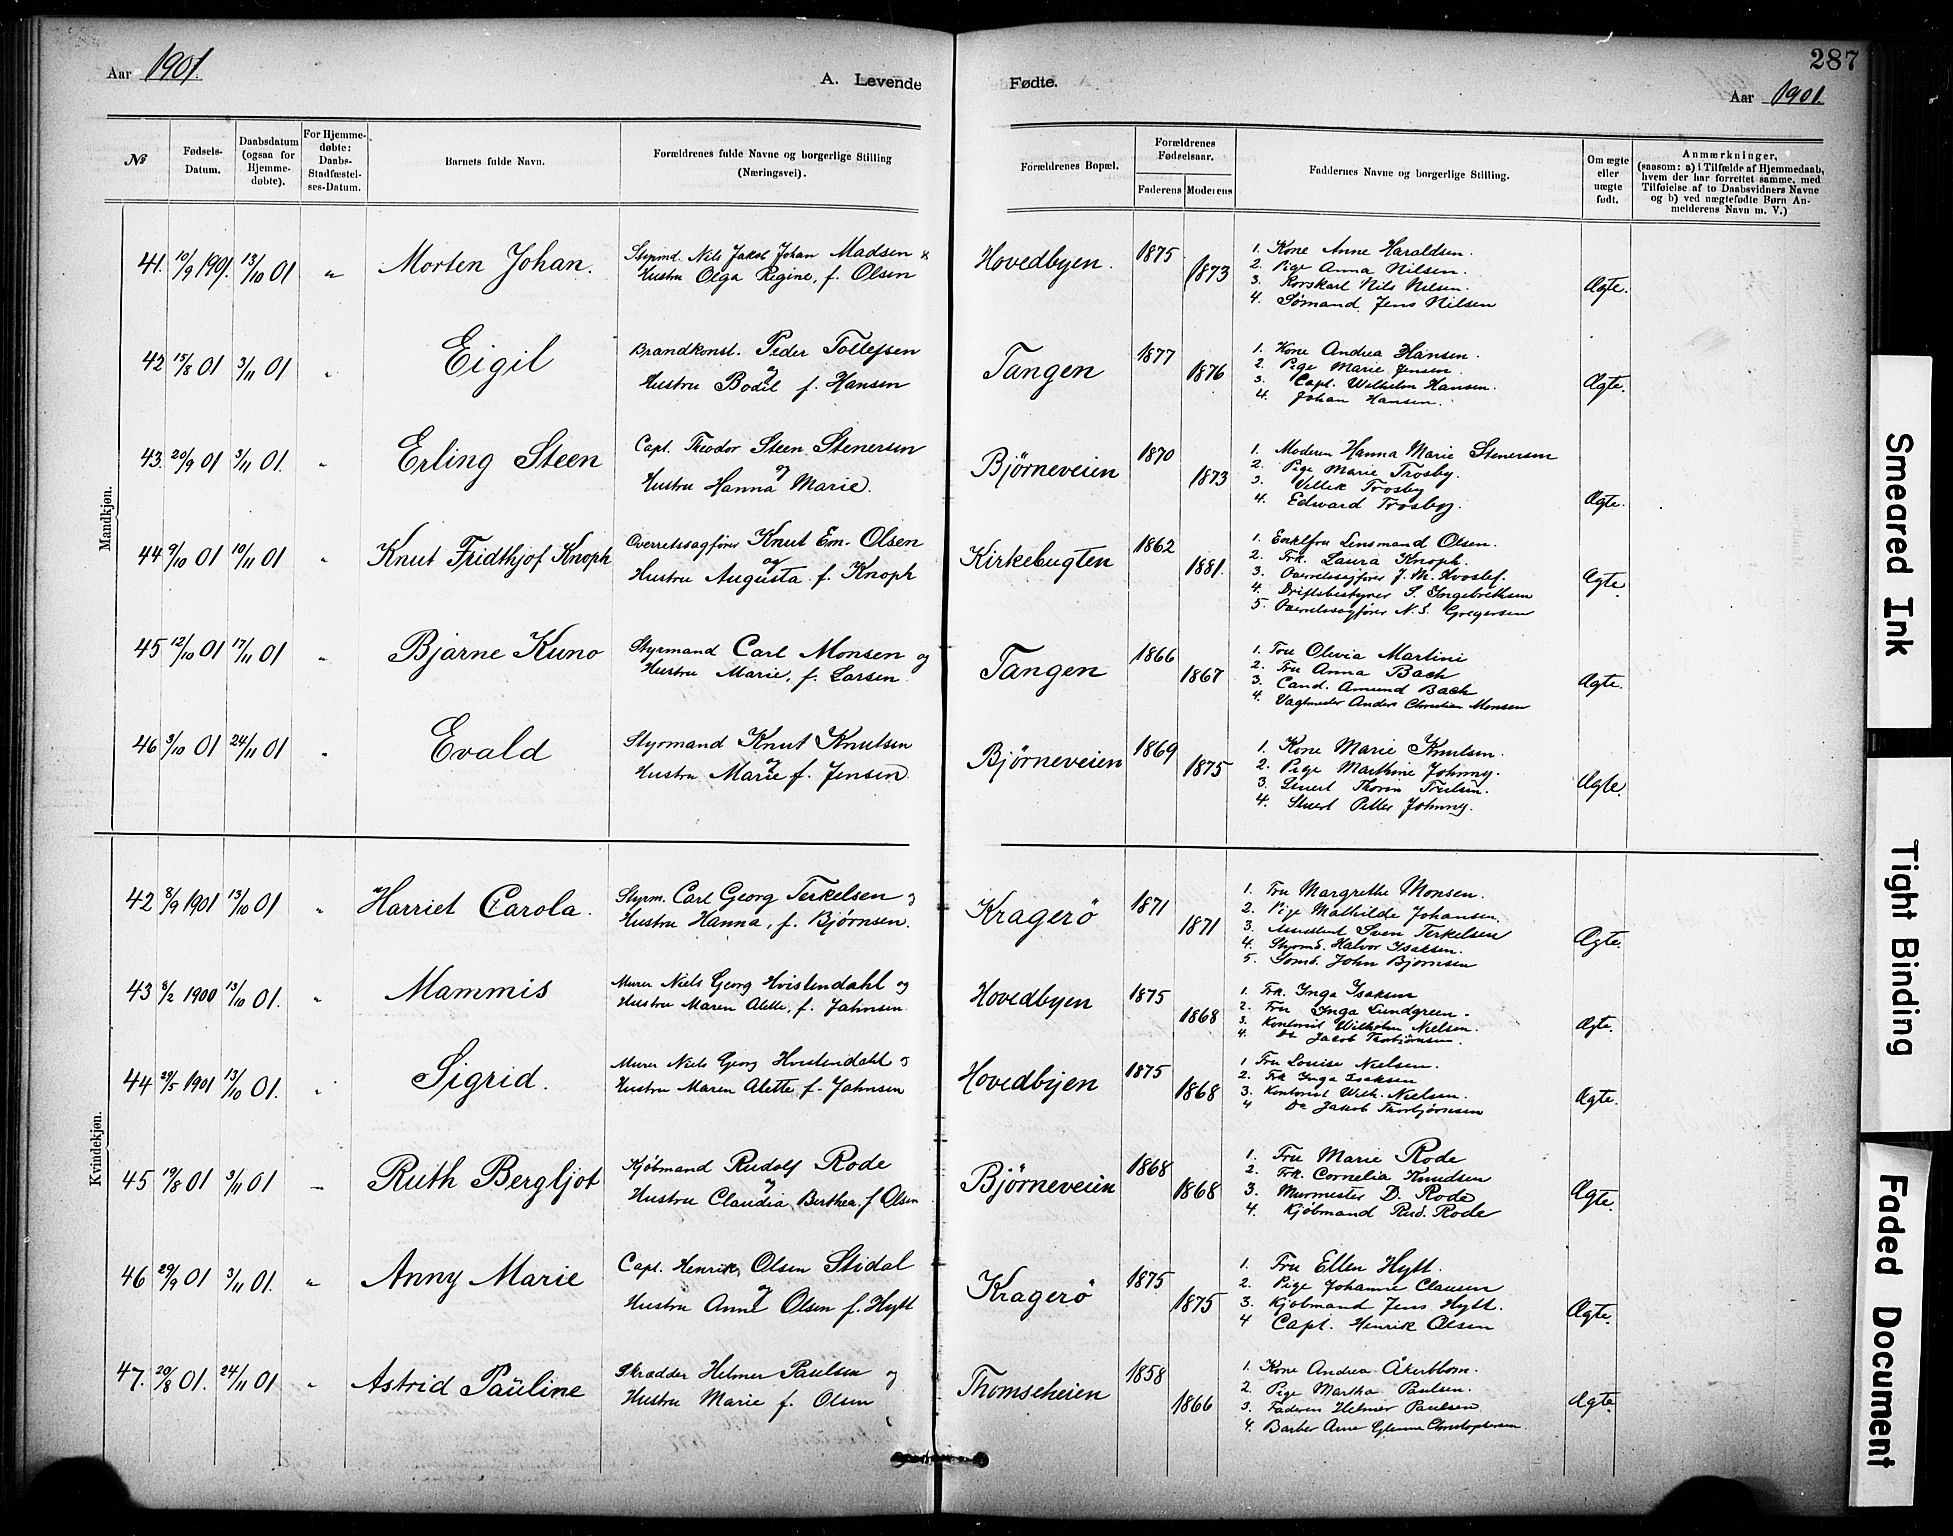 287
Aar 1901.
A. Levende Fødte.
Aar 1901
№
Fødsels-Datum.
Daabsdatum (ogsaa for Hjemme-døbte).
For Hjemme-døbte: Daabs-Stadfæstel-ses-Datum.
Barnets fulde Navn.
Forældrenes fulde Navne og borgerlige Stilling (Næringsvei).
Forældrenes Bopæl.
Forældrenes Fødselsaar.
Faderens Moderens
Faddernes Navne og borgerlige Stilling.
Om ægte eller uægte født.
Anmærkninger,
(saasom: a) i Tilfælde af Hjemmedaab,
hvem der har forrettet samme, med
Tilføielse af to Daabsvidners Navne
og b) ved uægtefødte Børn An-
melderens Navn m. V.)
Mandkjøn.
41. 10/9 1901. 13/10 01 " Morten Johan.
Styrmd. Nils Jakob Johan Madsen &
Hustru Olga Regine, f. Olsen
Hovedbyen. 1875 1873
1. Kone Anne Haraldsen.
2. Pige Anna Nilsen.
3. Korskarl Nils Nilsen.
4. Sømand Jens Nilsen
Ægte.
42 15/8 01 3/11 01 " Eigil
Brandkonst. Peder Tollefsen
og
Hustru Bodil f. Hansen
Tangen 1877 1876
1. Kone Andrea Hansen.
2. Pige Marie Jensen.
3. Capt. Wilhelm Hansen.
4. Johan Hansen.
Ægte.
43. 20/9 01 3/11 01. " Erling Steen
Capt. Theodor Steen Stenersen
og
Hustru Hanna Marie.
Bjørneveien 1870 1873
1. Moderen Hanna Marie Stenersen
2. Pige Marie Trosby.
3. Trosby
4. Edward Trosby.
Ægte.
44 9/10 01 10/11 01 " Knut Fridthjof Knoph
Overretssagfører Knut Em. Olsen
og
Hustru Augusta f. Knoph
Kirkebugten 1862 1881.
1. Enkefru Lensmand Olsen.
2. Frk. Laura Knoph.
3. Overretssagfører J. M.
4. Driftsbestyrer S. Ingebrethsen
5. Overretssagfører N. S. Gregersen
Ægte.
45 12/10 01 17/11 01 " Bjarne Kuno
Styrmand Carl Monsen og
Hustru Marie, f. Larsen
Tangen 1866 1867
1. Fru Olivia Martini
2. Fru Anna Bach
3. Cand. Amund Bach
4. Vagtmester Anders Christian Monsen
Ægte.
46 3/10 01 24/11 01 " Evald
Styrmand Knut Knutsen
og
Hustru Marie f. Jensen.
Bjørneveien 1869 1875
1. Kone Marie Knutsen.
2. Pige Marthine Johnny.
3. Stuert Thorin
4. Stuert Petter Johnny.
Ægte.
Kvindekjøn.
42 8/9 1901 13/10 01 " Harriet Carola.
Styrm. Carl Georg Terkelsen og
Hustru Hanna, f. Bjørnsen.
Kragerö 1871 1871
1. Fru Margrethe Monsen.
2. Pige Mathilde Johansen.
3. Assistent Sven Terkelsen
4. Styrmd. Halvor Isaksen.
5. Sømd. John Bjørnsen
Ægte.
43 8/2 1900 13/10 01. " Mammis
Murer Niels Georg Hvistendahl og
Hustru Maren Alette, f. Jahnsen
Hovedbyen 1875 1868
1. Frk. Inga Isaksen
2. Fru Inga Lundgreen.
3. Kontorist Wilhelm Nielsen.
4. Do Jacob Thorbjørnsen.
Ægte.
44 29/5 1901 13/10 01. " Sigrid.
Murer Niels Georg Hvistendahl og
Hustru Maren Alette f. Jahnsen
Hovedbyen 1875 1868
1. Fru Louise Nielsen.
2. Frk Inga Isaksen
3. Kontorist Wilh. Nielsen.
4 Do Jakob Thorbjørnsen
Ægte.
45 19/8 01 3/11 01 — Ruth Bergljot
Kjøbmand Rudolf Rode
og
Hustru Claudia Berthea f. Olsen
Bjørneveien 1868 1868
1. Fru Marie Rode
2. Frk. Cornelia Knudsen
3. Murmester D. Rode
4. Kjøbmand Rud. Rode
Ægte.
46 29/9 01 3/11 01. " Anny Marie
Capt. Henrik Olsen Stidal
og
Hustru Anne Olsen f. Hytt
Kragerö 1875 1875
1. Fru Ellen Hytt.
2. Pige Johanne Clausen
3. Kjøbmand Jens Hytt.
4 Capt. Henrik Olsen
Ægte.
47. 20/8 01. 24/11 01 " Astrid Pauline
Skrædder Helmer Paulsen og
Hustru Marie f. Olsen
Thomseheien 1858 1866
1. Kone Andrea Åkerblom.
2. Pige Martha Paulsen.
3. Faderen Helmer Paulsen
4. Barber Arne Christophersen
Ægte.
Smeared Ink
Tight Binding
Faded Document